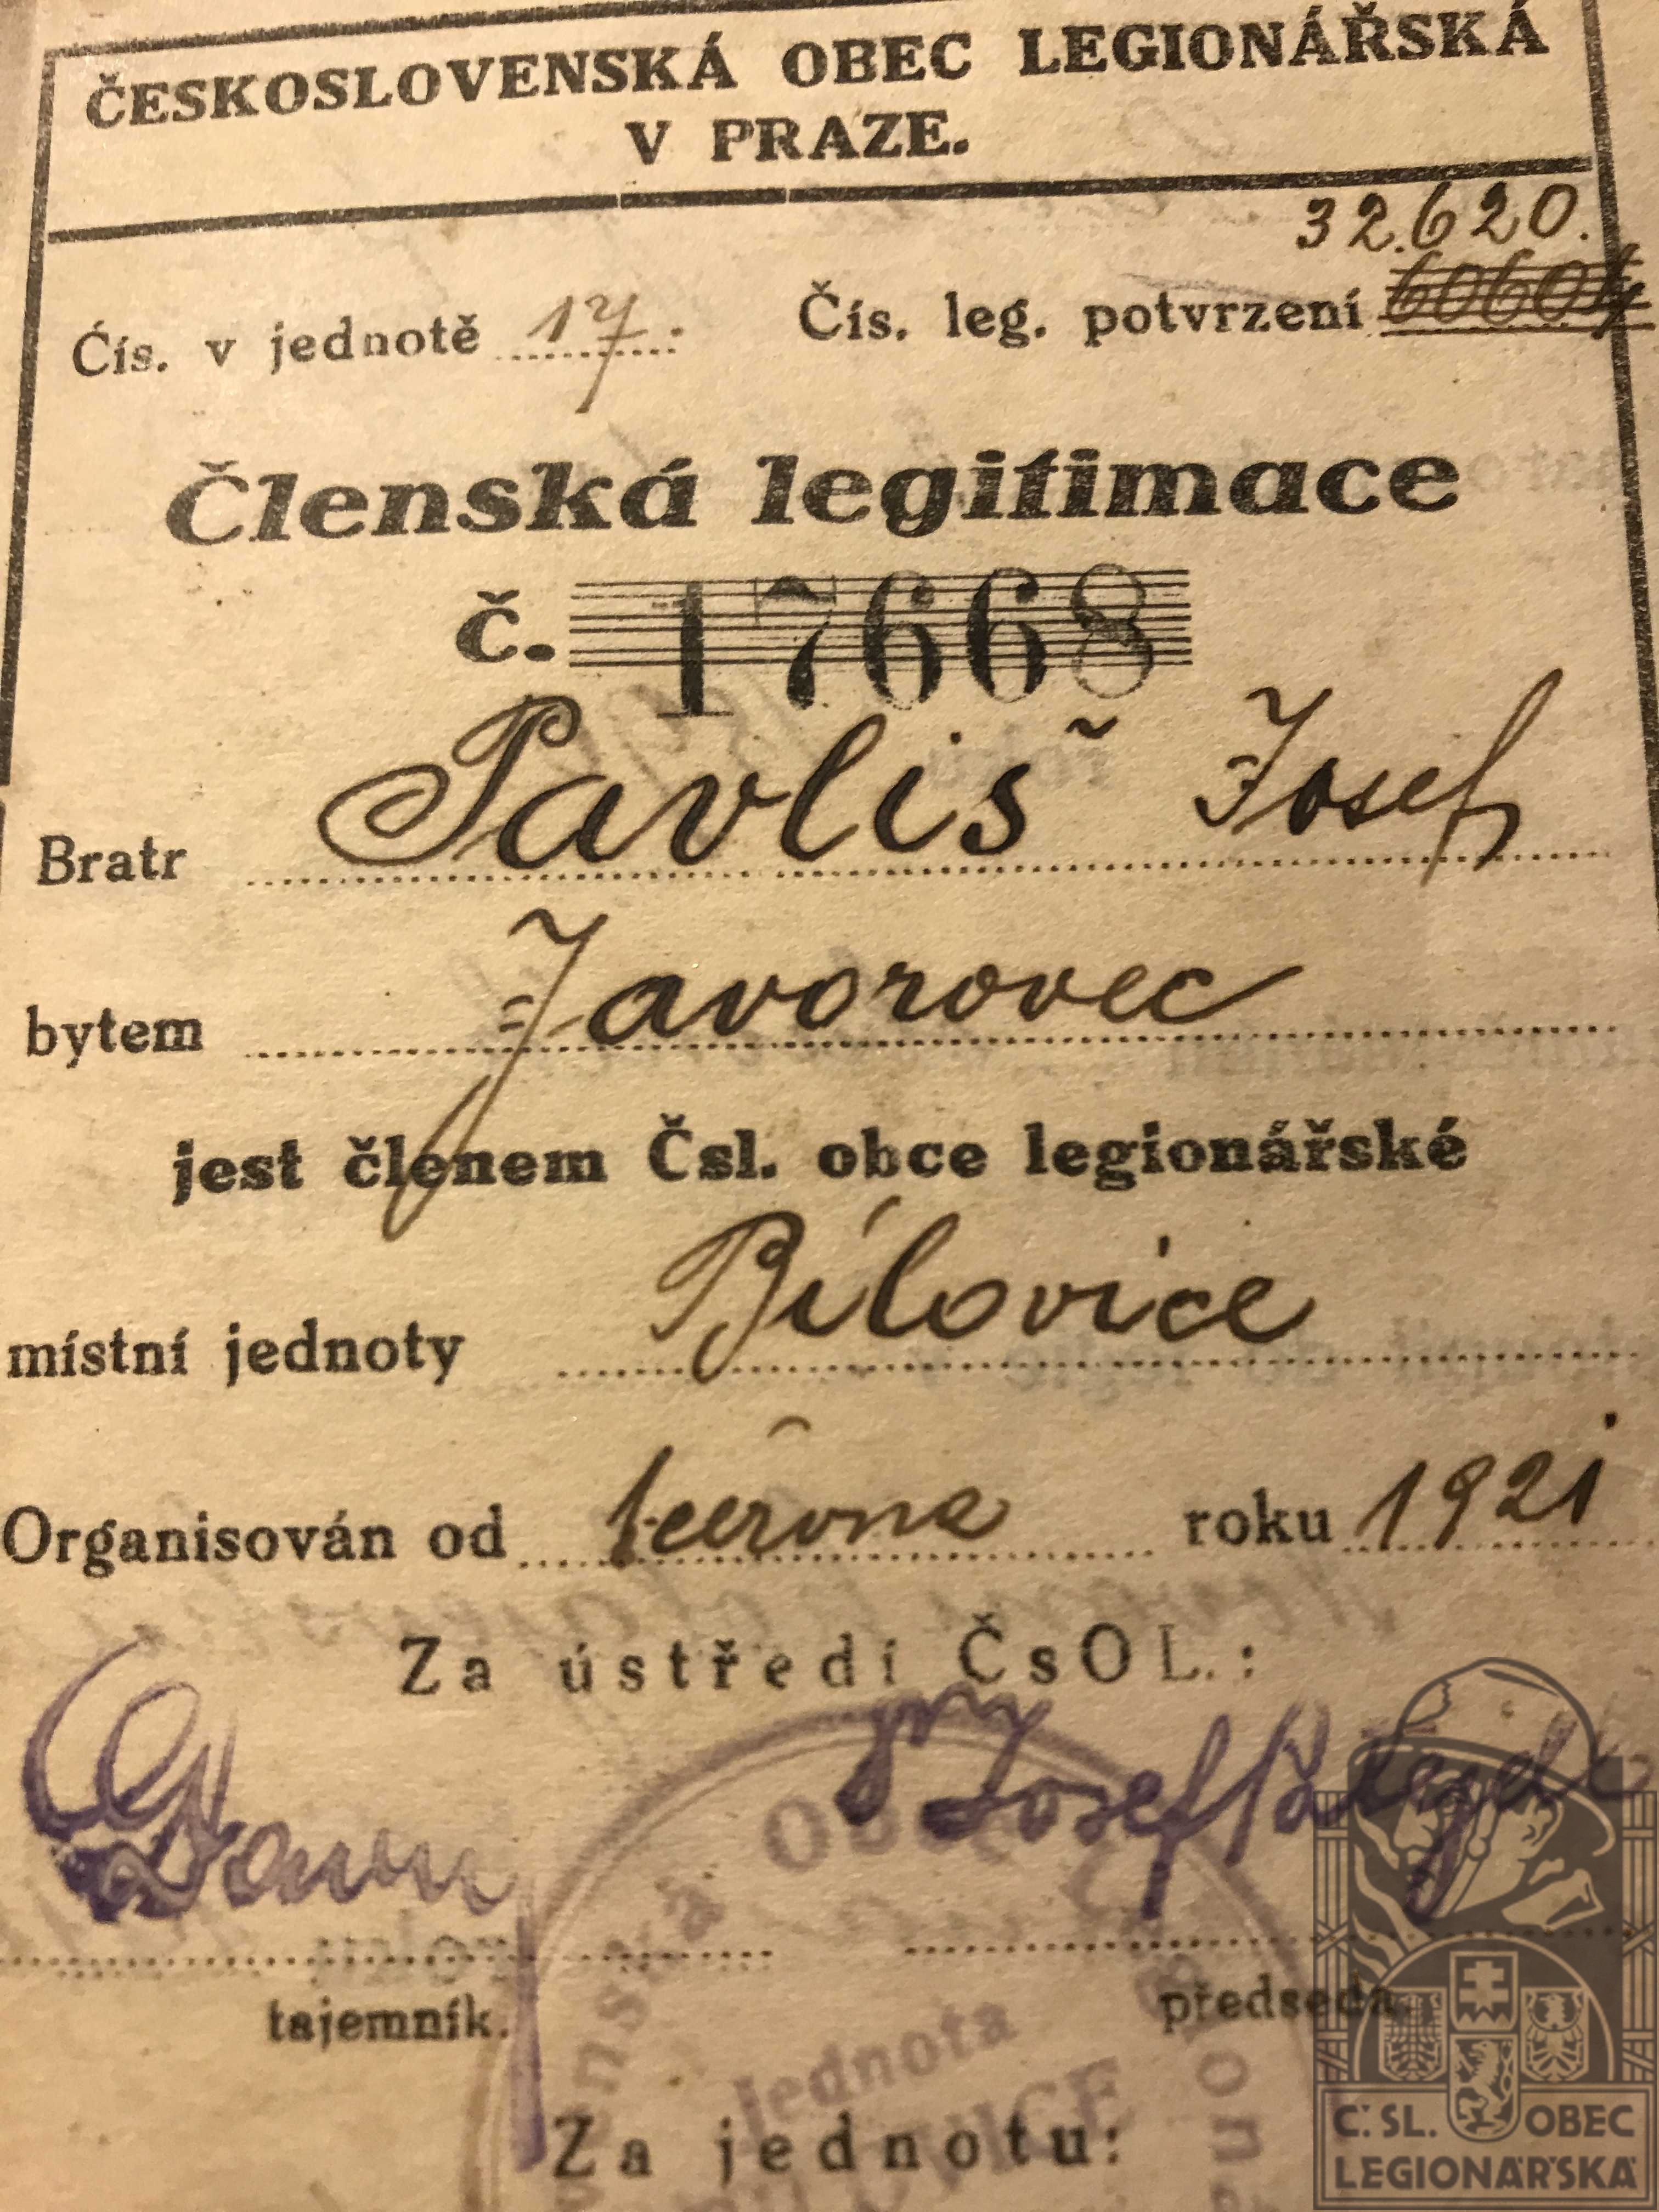 ČESKOSLOVENSKÁ OBEC LEGIONÁŘSKÁ
V PRAZE.
32.620.
Čís. v jednotě 17. Čís. leg. potvrzení 60604
Členská legitimace
č. 17668
Bratr Pavliš Josef
bytem Javorovec
jest členem Čsl. obce legionářské
místní jednoty Bílovice
Organisován od června roku 1921
Za ústředí ČsOL.:
Josef Patejdl
tajemník. předseda.
Jednota
Za jednotu:
Č. SL. OBEC
LEGIONÁŘSKÁ